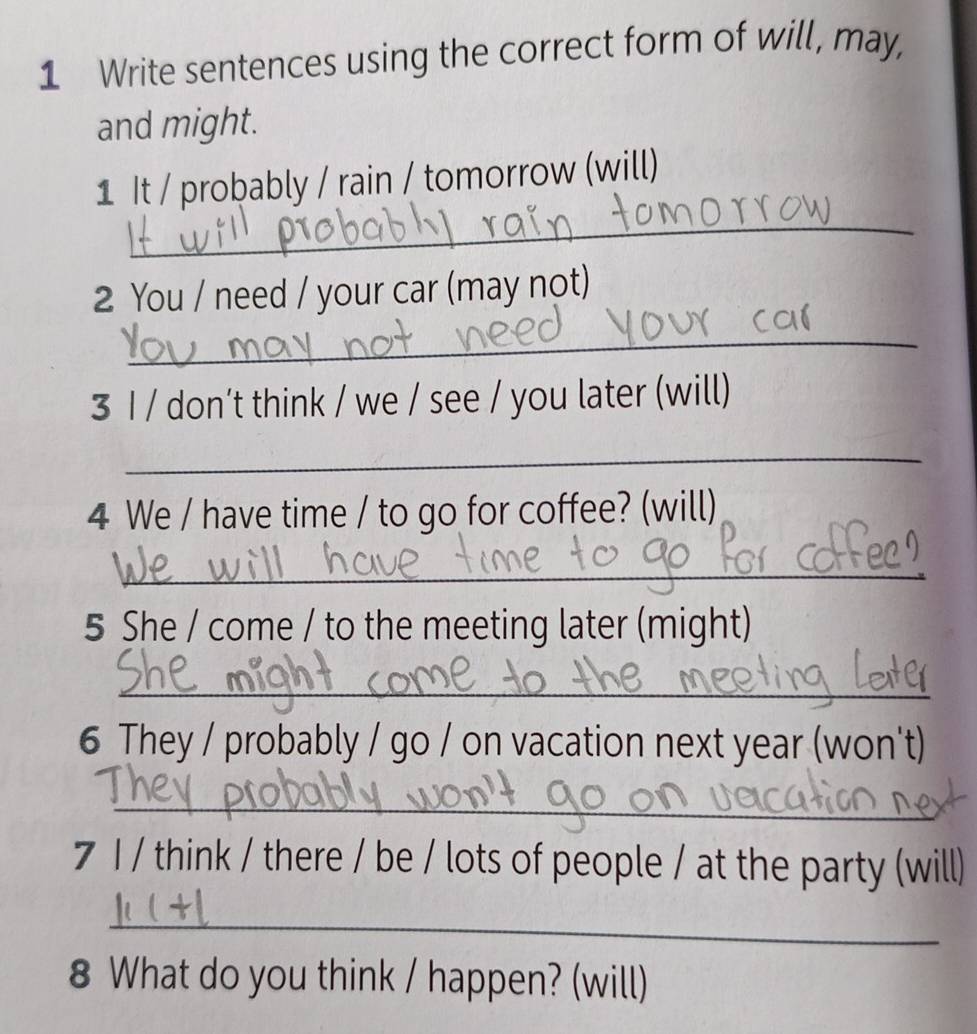 1 Write sentences using the correct form of will, may,
and might.
1 It / probably / rain / tomorrow (will)
It will probably rain tomorrow
2 You / need / your car (may not)
You may not need your car
3 I / don't think / we / see / you later (will)
4 We / have time / to go for coffee? (will)
We will have time to go for coffee?
5 She / come / to the meeting later (might)
She might come to the meeting later
6 They / probably / go / on vacation next year (won't)
They probably won't go on vacation next
7 I / think / there / be / lots of people / at the party (will)
8 What do you think / happen? (will)